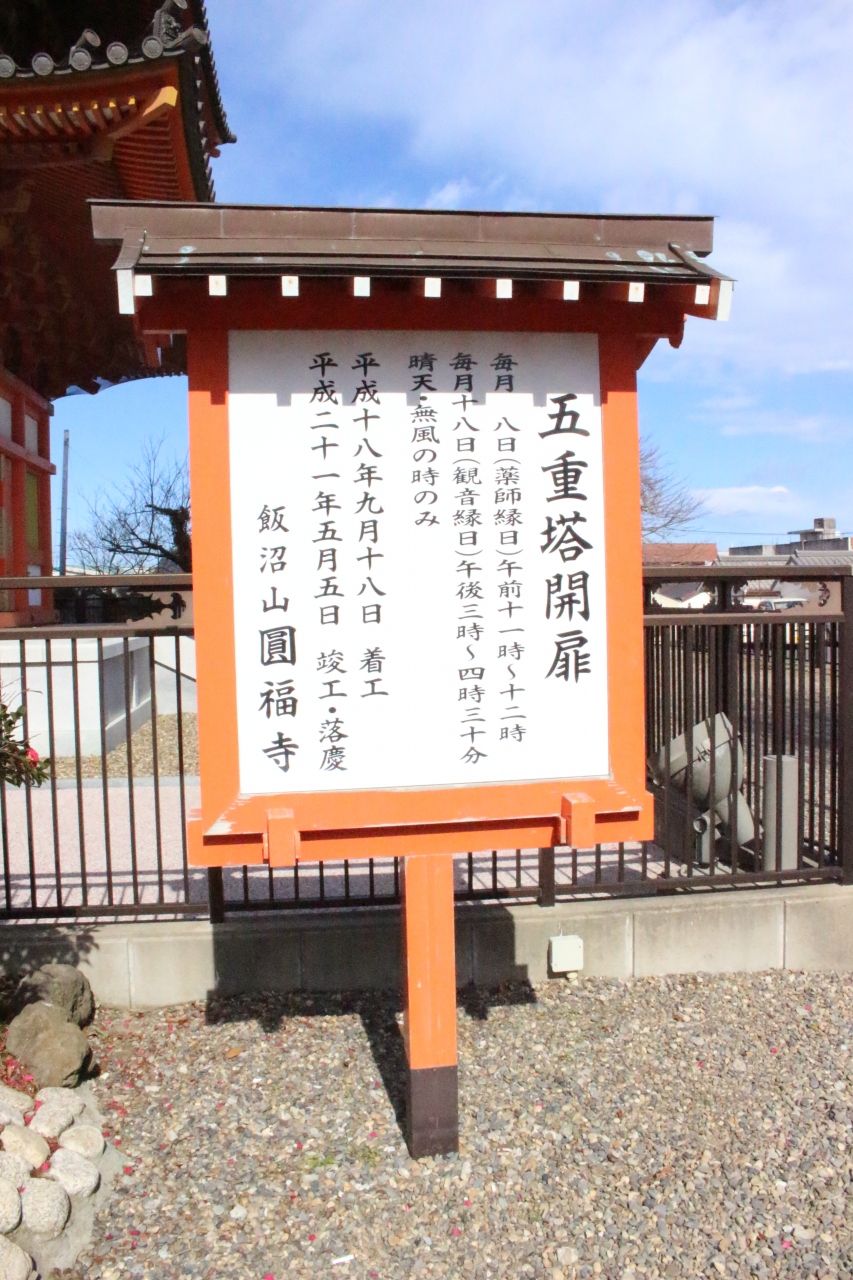 五重塔開扉
毎月　八日(薬師縁日)午前十一時～十二時
毎月十八日(観音縁日)午後三時～四時三十分
晴天・無風の時のみ
平成十八年九月十八日　着工
平成二十一年五月五日　竣工・落慶
飯沼山圓福寺